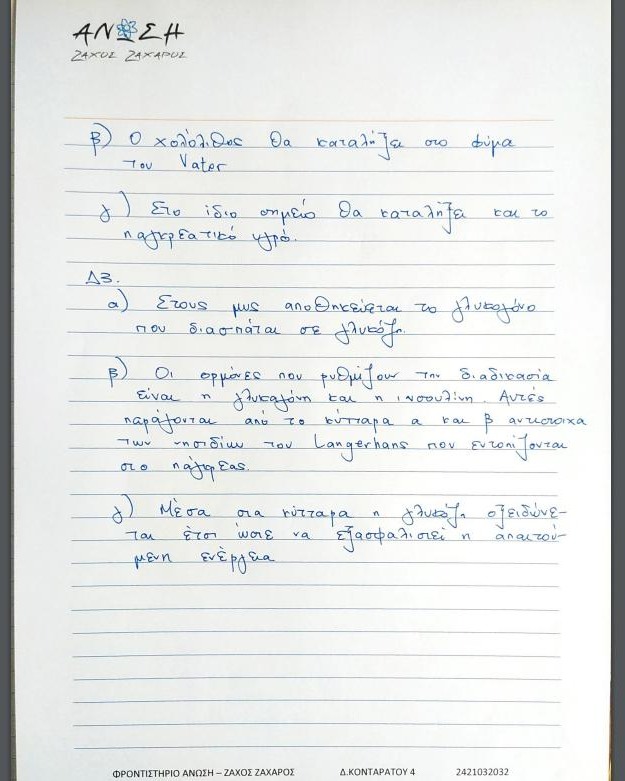 ΑΝΩΣΗ
ΖΑΧΟΣ ΖΑΧΑΡΟΣ
β) Ο χολόλιθος θα καταλήξει στο φύμα
του Vater
γ) Στο ίδιο σημείο θα καταλήξει και το
παγκρεατικό υγρό.
Δ3.
α) Στους μυς αποθηκεύεται το γλυκογόνο
που διασπάται σε γλυκόζη.
β) Οι ορμόνες που ρυθμίζουν την διαδικασία
είναι η γλυκαγόνη και η ινσουλίνη. Αυτές
παράγονται από το κύτταρα α και β αντίστοιχα
των νησιδίων του Langerhans που εντοπίζονται
στο πάγκρεας.
γ) Μέσα στα κύτταρα η γλυκόζη οξειδώνε-
ται έτσι ώστε να εξασφαλιστεί η απαιτού-
μενη ενέργεια
ΦΡΟΝΤΙΣΤΗΡΙΟ ΑΝΩΣΗ – ΖΑΧΟΣ ΖΑΧΑΡΟΣ Δ.ΚΟΝΤΑΡΑΤΟΥ 4 2421032032